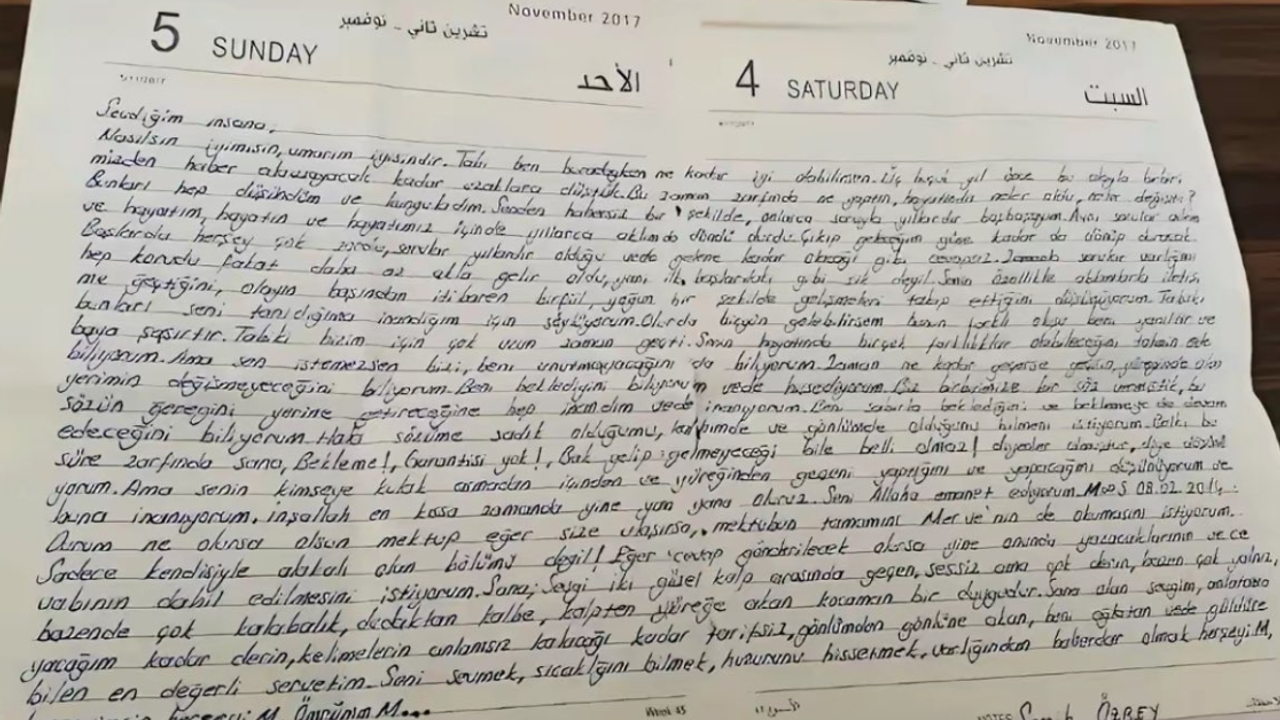 November 2017
تشرين ثاني - نوفمبر
5 SUNDAY الأحد
November 2017
تشرين ثاني - نوفمبر
4 SATURDAY السبت
Sevdiğim insana,
Nasılsın iyimisin, umarım iyisindir. Tabi ben buradayken ne kadar iyi olabilirsen. Üç yıl önce bu olayla birbiri
mizden haber alamayacak kadar uzaklara düştük. Bu zaman zarfında ne yaptın, hayatında neler oldu, neler değişti?
Bunları hep düşündüm ve kurguladım. Senden habersiz bir şekilde, onlarca soruyla yıllardır başbaşayım. Aynı sorular
ve hayatım, hayatın ve hayatımız içinde yıllarca aklımda döndü durdu. Çıkıp geleceğim güne kadar da dönüp duracak.
Başlarda herşey çok zordu, sorular yıllardır olduğu vede gelene kadar olacağı gibi cevapsız. Zamanla sorular varlığını
hep korudu fakat daha az akla gelir oldu, yani ilk başlardaki gibi sık değil. Senin özellikle ablamlarla iletişi
me geçtiğini, olayın başından itibaren birfiil, yoğun bir şekilde gelişmeleri takip ettiğini düşünüyorum. Tabiki
bunları seni tanıdığıma inandığım için söylüyorum. Olurda birgün gelebilirsem bunun farklı oluşu beni yanıltır ve
baya şaşırtır. Tabiki bizim için çok uzun zaman geçti. Senin hayatında birçok farklılıklar olabileceğini tahmin ede
biliyorum. Ama sen istemezsen bizi, beni unutmayacağını da biliyorum. Zaman ne kadar geçerse geçsin, yüreğinde olan
yerimin değişmeyeceğini biliyorum. Beni beklediğini biliyorum vede hissediyorum. Biz birbirimize bir söz vermiştik, bu
sözün gereğini yerine getireceğine hep inandım vede inanıyorum. Beni sabırla beklediğini ve beklemeye de devam
edeceğini biliyorum. Hala sözüme sadık olduğumu, kalbimde ve gönlümde olduğunu bilmeni istiyorum. Belki bu
süre zarfında sana, Bekleme!, Garantisi yok!, Bak gelip gelmeyeceği bile belli olmaz! diyenler olmuştur, diye düşünü
yorum. Ama senin kimseye kulak asmadan içinden ve yüreğinden geçeni yaptığını ve yapacağını düşünüyorum ve
buna inanıyorum. inşallah en kısa zamanda yine yan yana oluruz. Seni Allaha emanet ediyorum. M∞S 08.02.2014.
Durum ne olursa olsun mektup eğer size ulaşırsa, mektubun tamamını Merve'nin de okumasını istiyorum.
Sadece kendisiyle alakalı olan bölümü değil! Eğer cevap gönderilecek olursa yine onunda yazacaklarının ve ce
vabının dahil edilmesini istiyorum. Sana; Sevgi iki güzel kalp arasında geçen, sessiz ama çok derin, bazen çok yalnız,
bazende çok kalabalık, dudaktan kalbe, kalpten yüreğe akan kocaman bir duygudur. Sana olan sevgim, anlatama
yacağım kadar derin, kelimelerin anlamsız kalacağı kadar tarifsiz, gönlümden gönlüne akan, beni ağlatan vede güldüre
bilen en değerli servetim. Seni sevmek, sıcaklığını bilmek, huzurunu hissetmek, varlığından haberdar olmak herşeyi M,
herşeyi M, Ömrünün M...
Week 45
NOTES
ÖZBEY